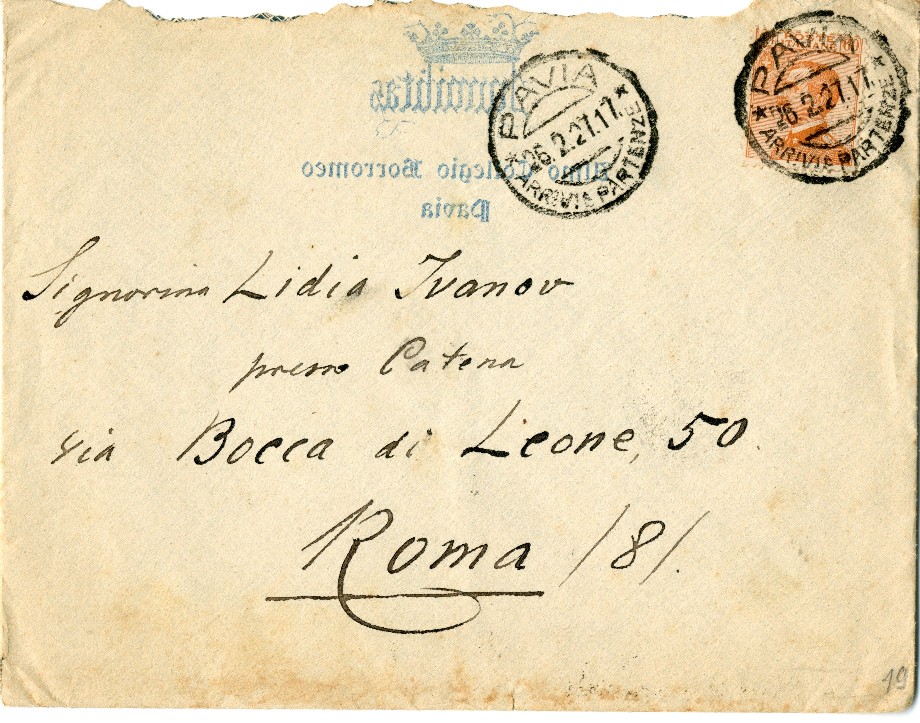 Humilitas
Almo Collegio Borromeo
Pavia
PAVIA
26.2.27.17
* ARRIVI E PARTENZE *
PAVIA
26.2.27.17
* ARRIVI E PARTENZE *
Signorina Lidia Ivanov
presso Catena
Via Bocca di Leone, 50.
Roma /8/.
19